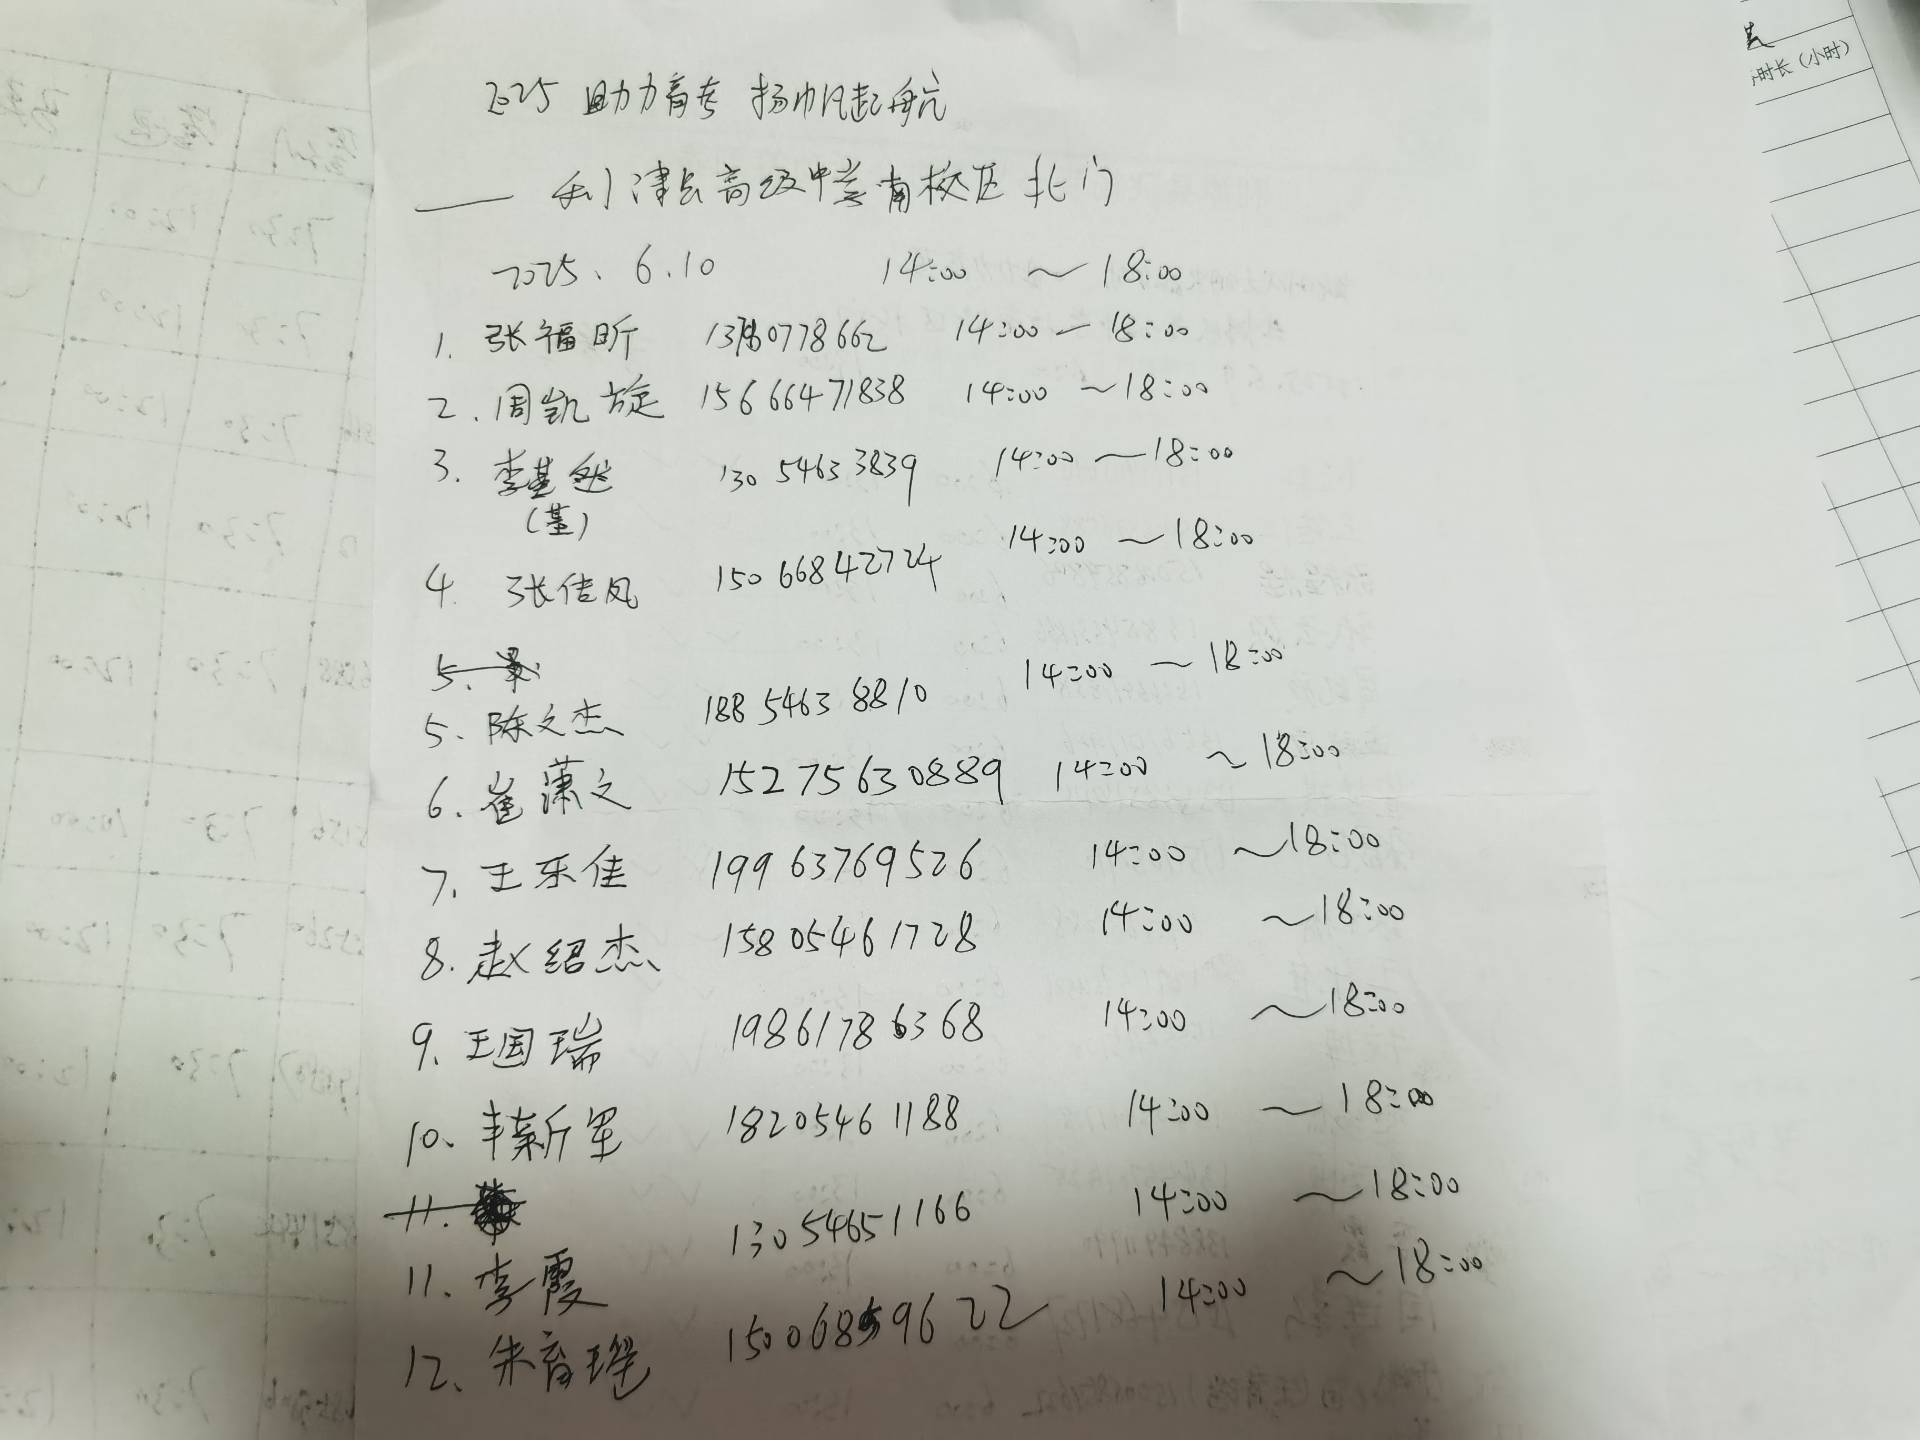 2025 助力高考 扬帆起航
—— 利津县高级中学南校区北门
2025.6.10 14:00 ～ 18:00
1. 张福昕 0778662 14:00 — 18:00
2. 周凯旋 15666471838 14:00 ～ 18:00
3. 李基然 13054633839 14:00 ～ 18:00
(基)
4. 张佳凤 15066842724 14:00 ～ 18:00
5.
5. 陈文杰 18854638810 14:00 ～ 18:00
6. 崔潇文 15275630889 14:00 ～ 18:00
7. 王乐佳 19963769526 14:00 ～ 18:00
8. 赵绍杰 15805461728 14:00 ～ 18:00
9. 王国瑞 19861786368 14:00 ～ 18:00
10. 新军 18205461188 14:00 ～ 18:00
11.
11. 李霞 13054651166 14:00 ～ 18:00
12. 朱育瑶 15006859622 14:00 ～ 18:00
时长（小时）